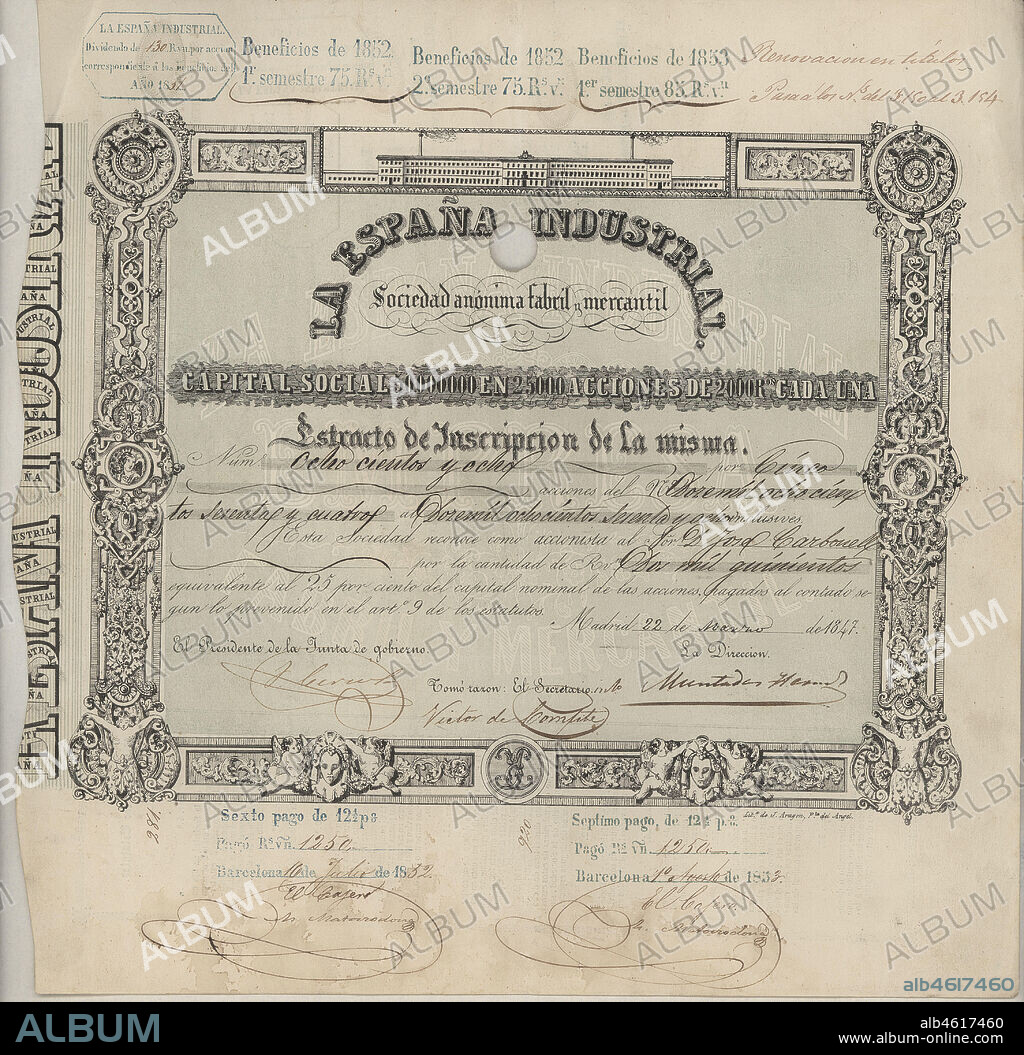 LA ESPAÑA INDUSTRIAL.
Dividendo de 130 R.vn. por accion
correspondiente á los beneficios del
AÑO 185
Beneficios de 1852.
1er. semestre 75. Rs. vn.
Beneficios de 1852
2o. semestre 75. Rs. vn.
Beneficios de 1853
1er semestre 85. Rs. vn
Renovacion en titulos
Para los Nos. del 3.180 al 3.184
LA ESPAÑA INDUSTRIAL.
Sociedad anónima fabril y mercantil
CAPITAL SOCIAL EN 25000 ACCIONES DE 2000 Rn. CADA UNA
Estracto de Inscripcion de la misma.
Num. Ocho cientos y ocho por Cinco
acciones del No. Dos mil ocho cien
tos sesenta y cuatro al Dos mil ochocientos sesenta y ocho inclusives.
Esta Sociedad reconoce como accionista al Sor. D. José Carbonell
por la cantidad de Rvn. Dos mil quinientos
equivalente al 25 por ciento del capital nominal de las acciones, pagados al contado se-
gun lo prevenido en el arto. 9 de los estatutos.
Madrid 22 de Marzo de 1847.
El Presidente de la Junta de gobierno.
La Direccion.
Tomó razon: El Secretario
Muntadas Herm
Victor de
Lito. de J. Aragon, Pla. del Angel.
782
920
Sexto pago de 12½ p%
Pagó Rs. vn. 1250
Barcelona 10 de Julio de 1852.
El Cajero
Septimo pago, de 12½ p.%.
Pagó Rs. vn. 1250
Barcelona 1o. Agosto de 1853.
El Cajero
ALBUM
alb4617460
ALBUM
alb4617460
www.album-online.com